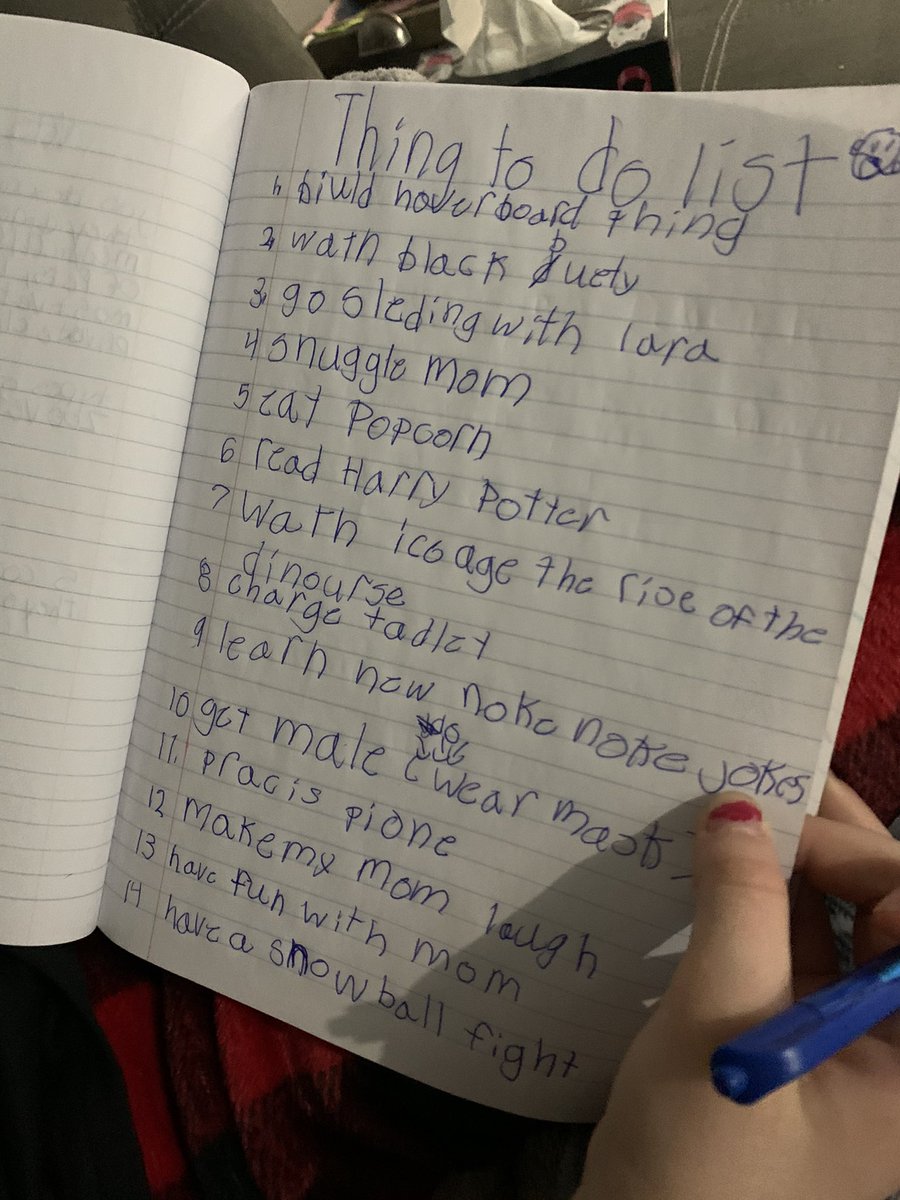 Thing to do list
1. biuld hoverboard thing
2, wath black buety
3, go Sleding with lara
4 snuggle mom
5 eat Popcorn
6 read Harry Potter
7 Wath ice age the rise of the
dinourse
8 charge tadlet
9 learn new noke noke jokes
10 get male (wear mask)
11. pracis pione
12 make my mom laugh
13 have fun with mom
14 have a snowball fight